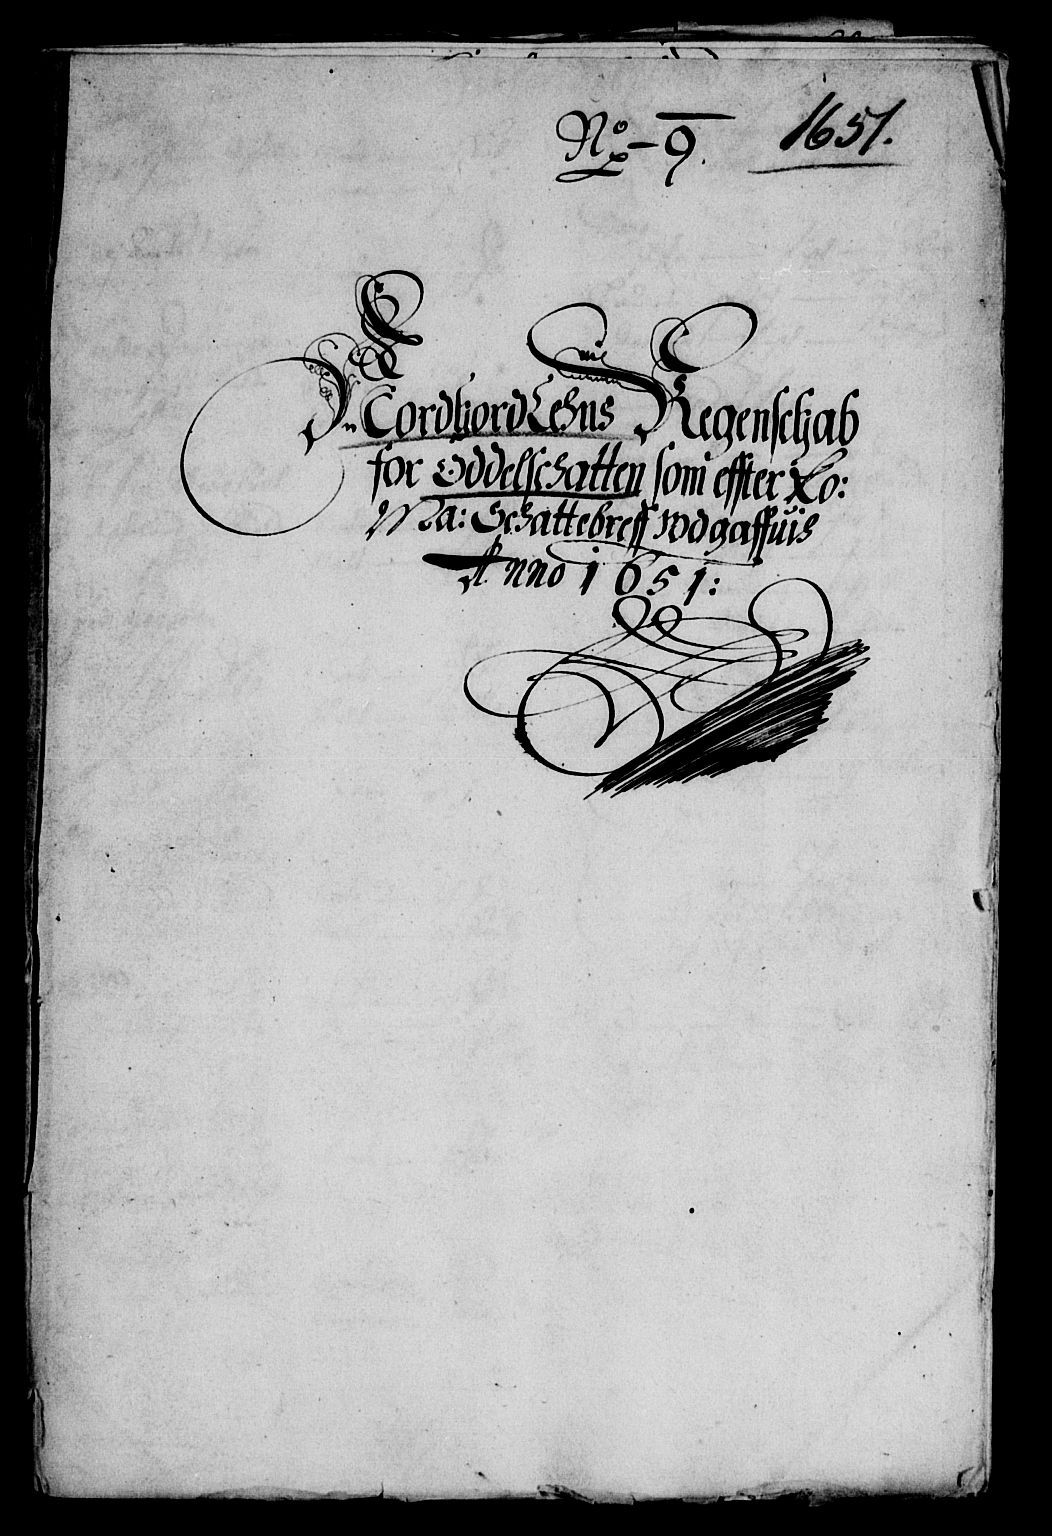 No 9. 1651.
Nordfiord Lehns Regenschab
for Oddelschatten som effter Ko:
Ma: Schattebreff wdgaffuis
Anno 1651: